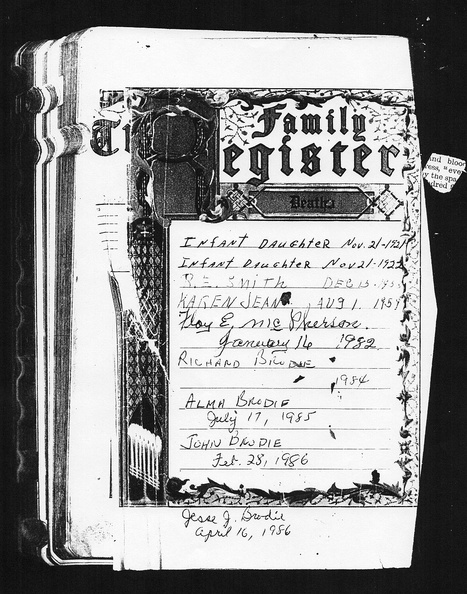 Family
Register
Deaths
INFANT DAUGHTER Nov. 21-1921
INFANT DAUGHTER Nov 21-192
R.E. SMITH DEC 13-195
KAREN JEAN AUG 1. 1959
Floy E, Mc Pherson.
January 16 1982
RICHARD BRODIE
1984
ALMA BRODIE
July 17, 1985
JOHN BRODIE
Feb. 28, 1986
Jesse J. Brodie
April 16, 1986
nd bloo
ress, "eve
y the spa
dred